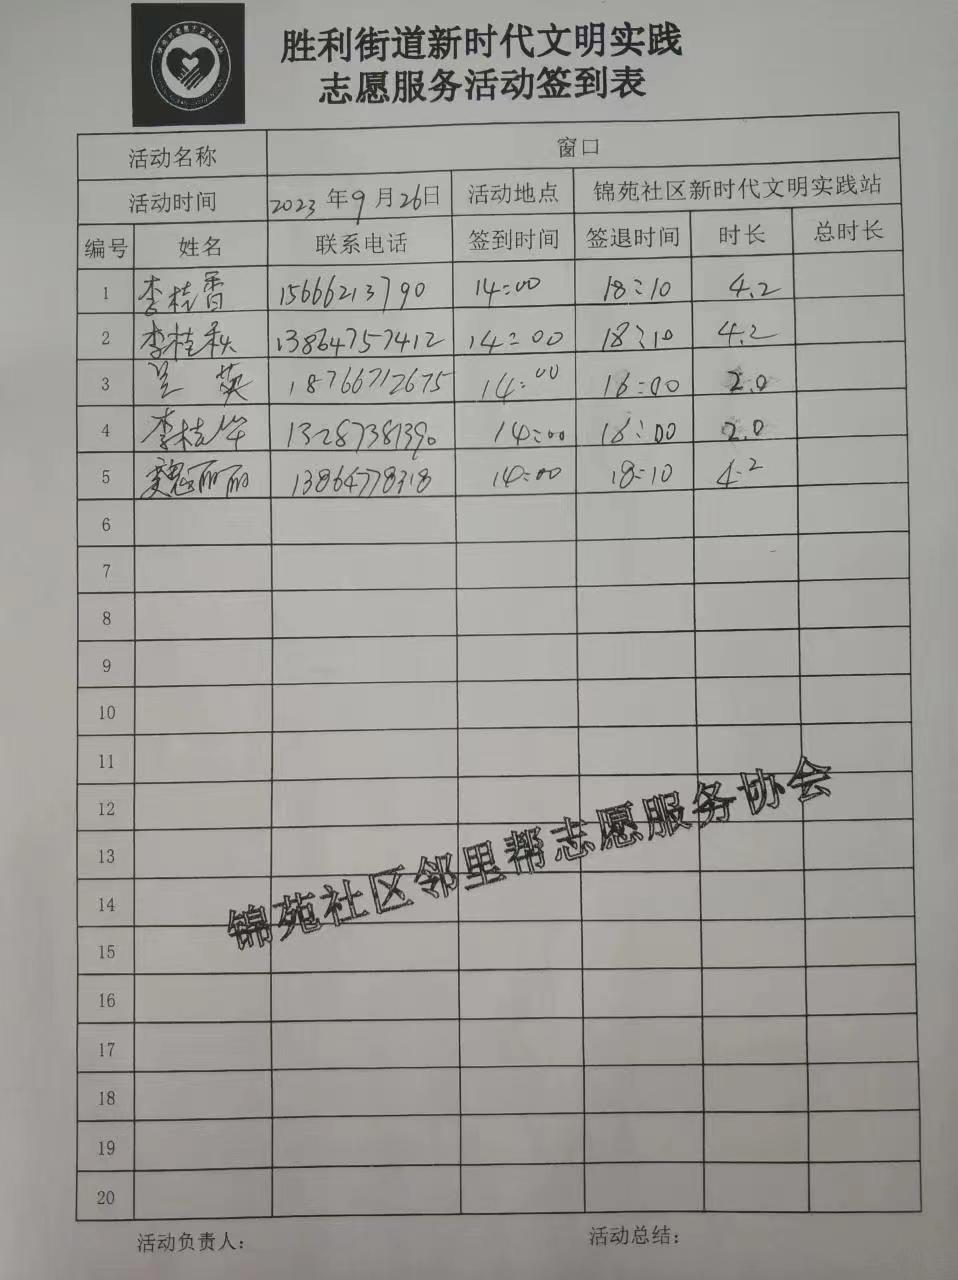 胜利街道新时代文明实践
志愿服务活动签到表
活动名称 窗口
活动时间 2023年9月26日 活动地点 锦苑社区新时代文明实践站
编号 姓名 联系电话 签到时间 签退时间 时长 总时长
1 李桂香 15666213790 14:00 18:10 4.2
2 李桂秋 13864757412 14:00 18:10 4.2
3 兰英 18766712675 14:00 16:00 2.0
4 李桂华 13287381390 14:00 16:00 2.0
5 魏丽丽 13864778318 14:00 18:10 4.2
6
7
8
9
10
11
12
13
14
15
16
17
18
19
20
锦苑社区邻里帮志愿服务协会
活动负责人: 活动总结: